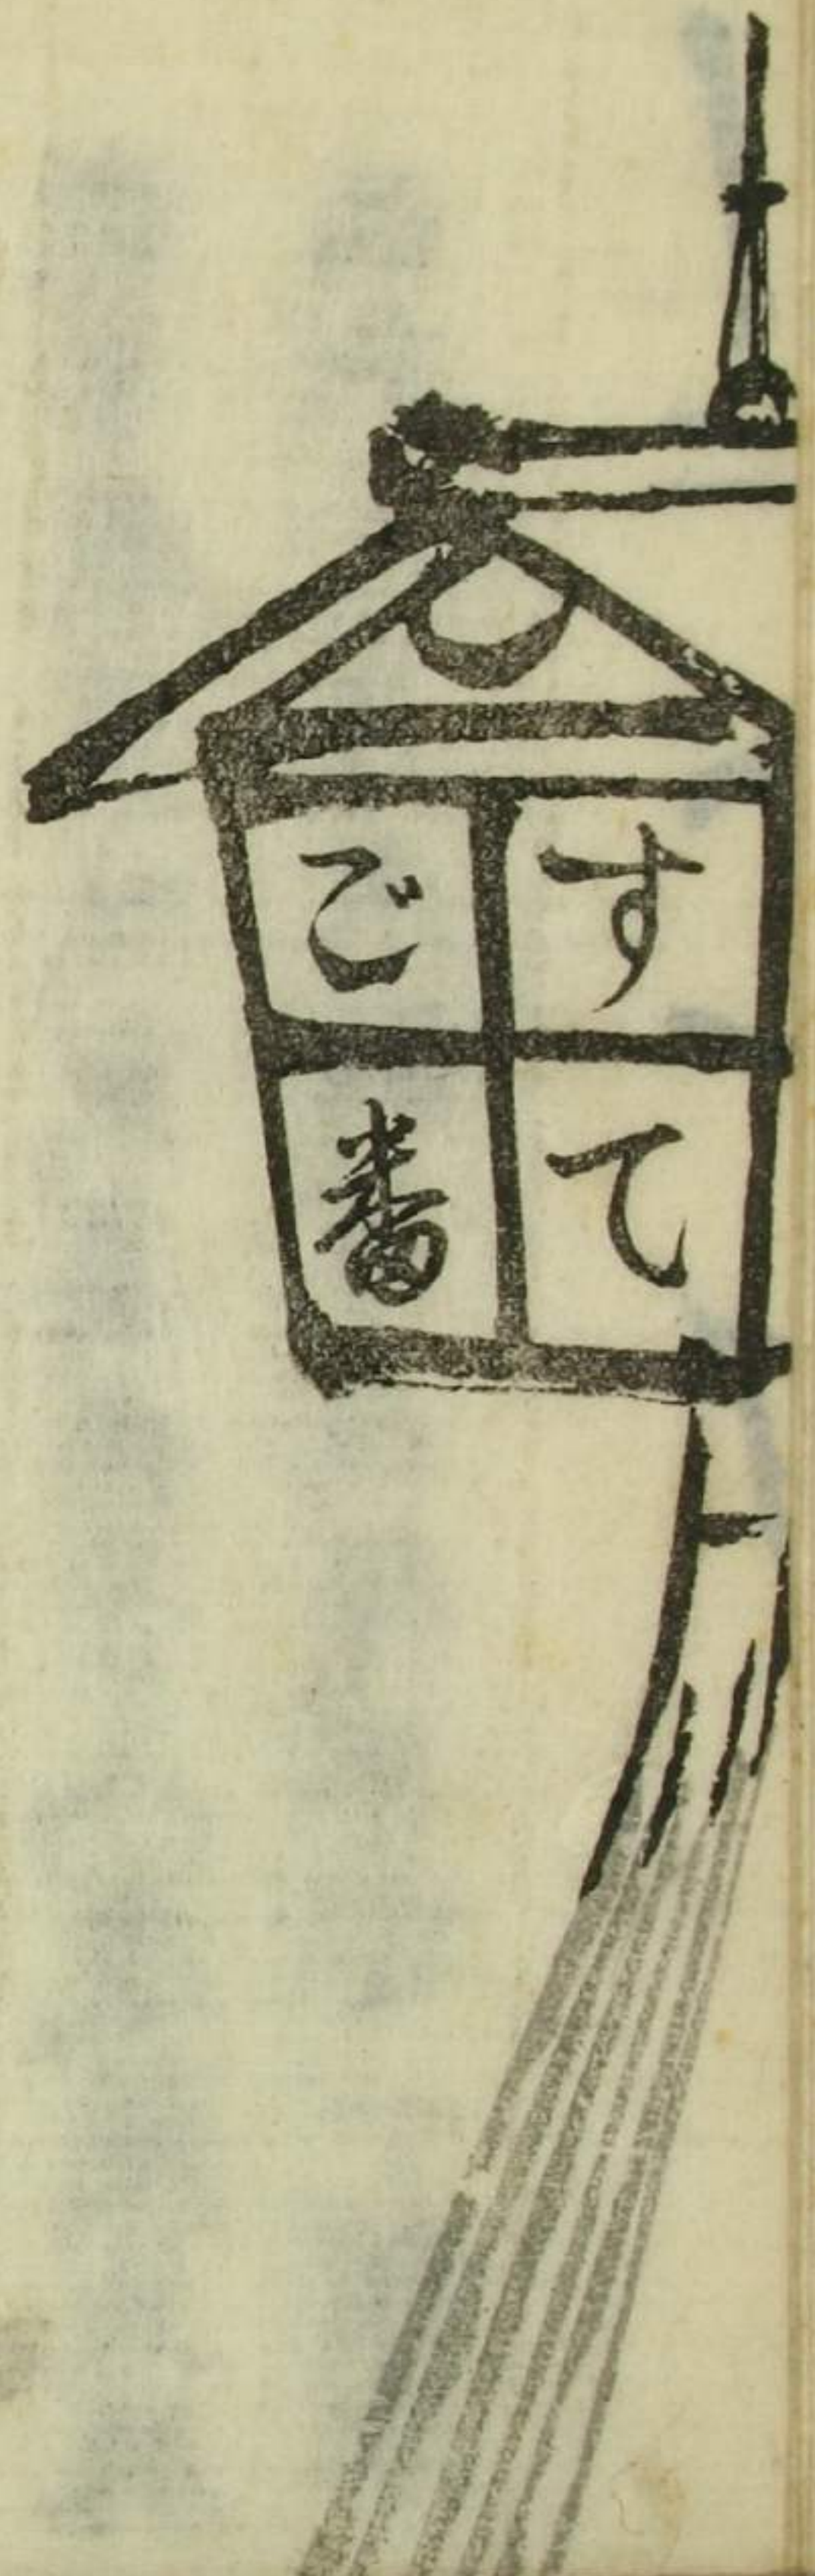 すて
ご番